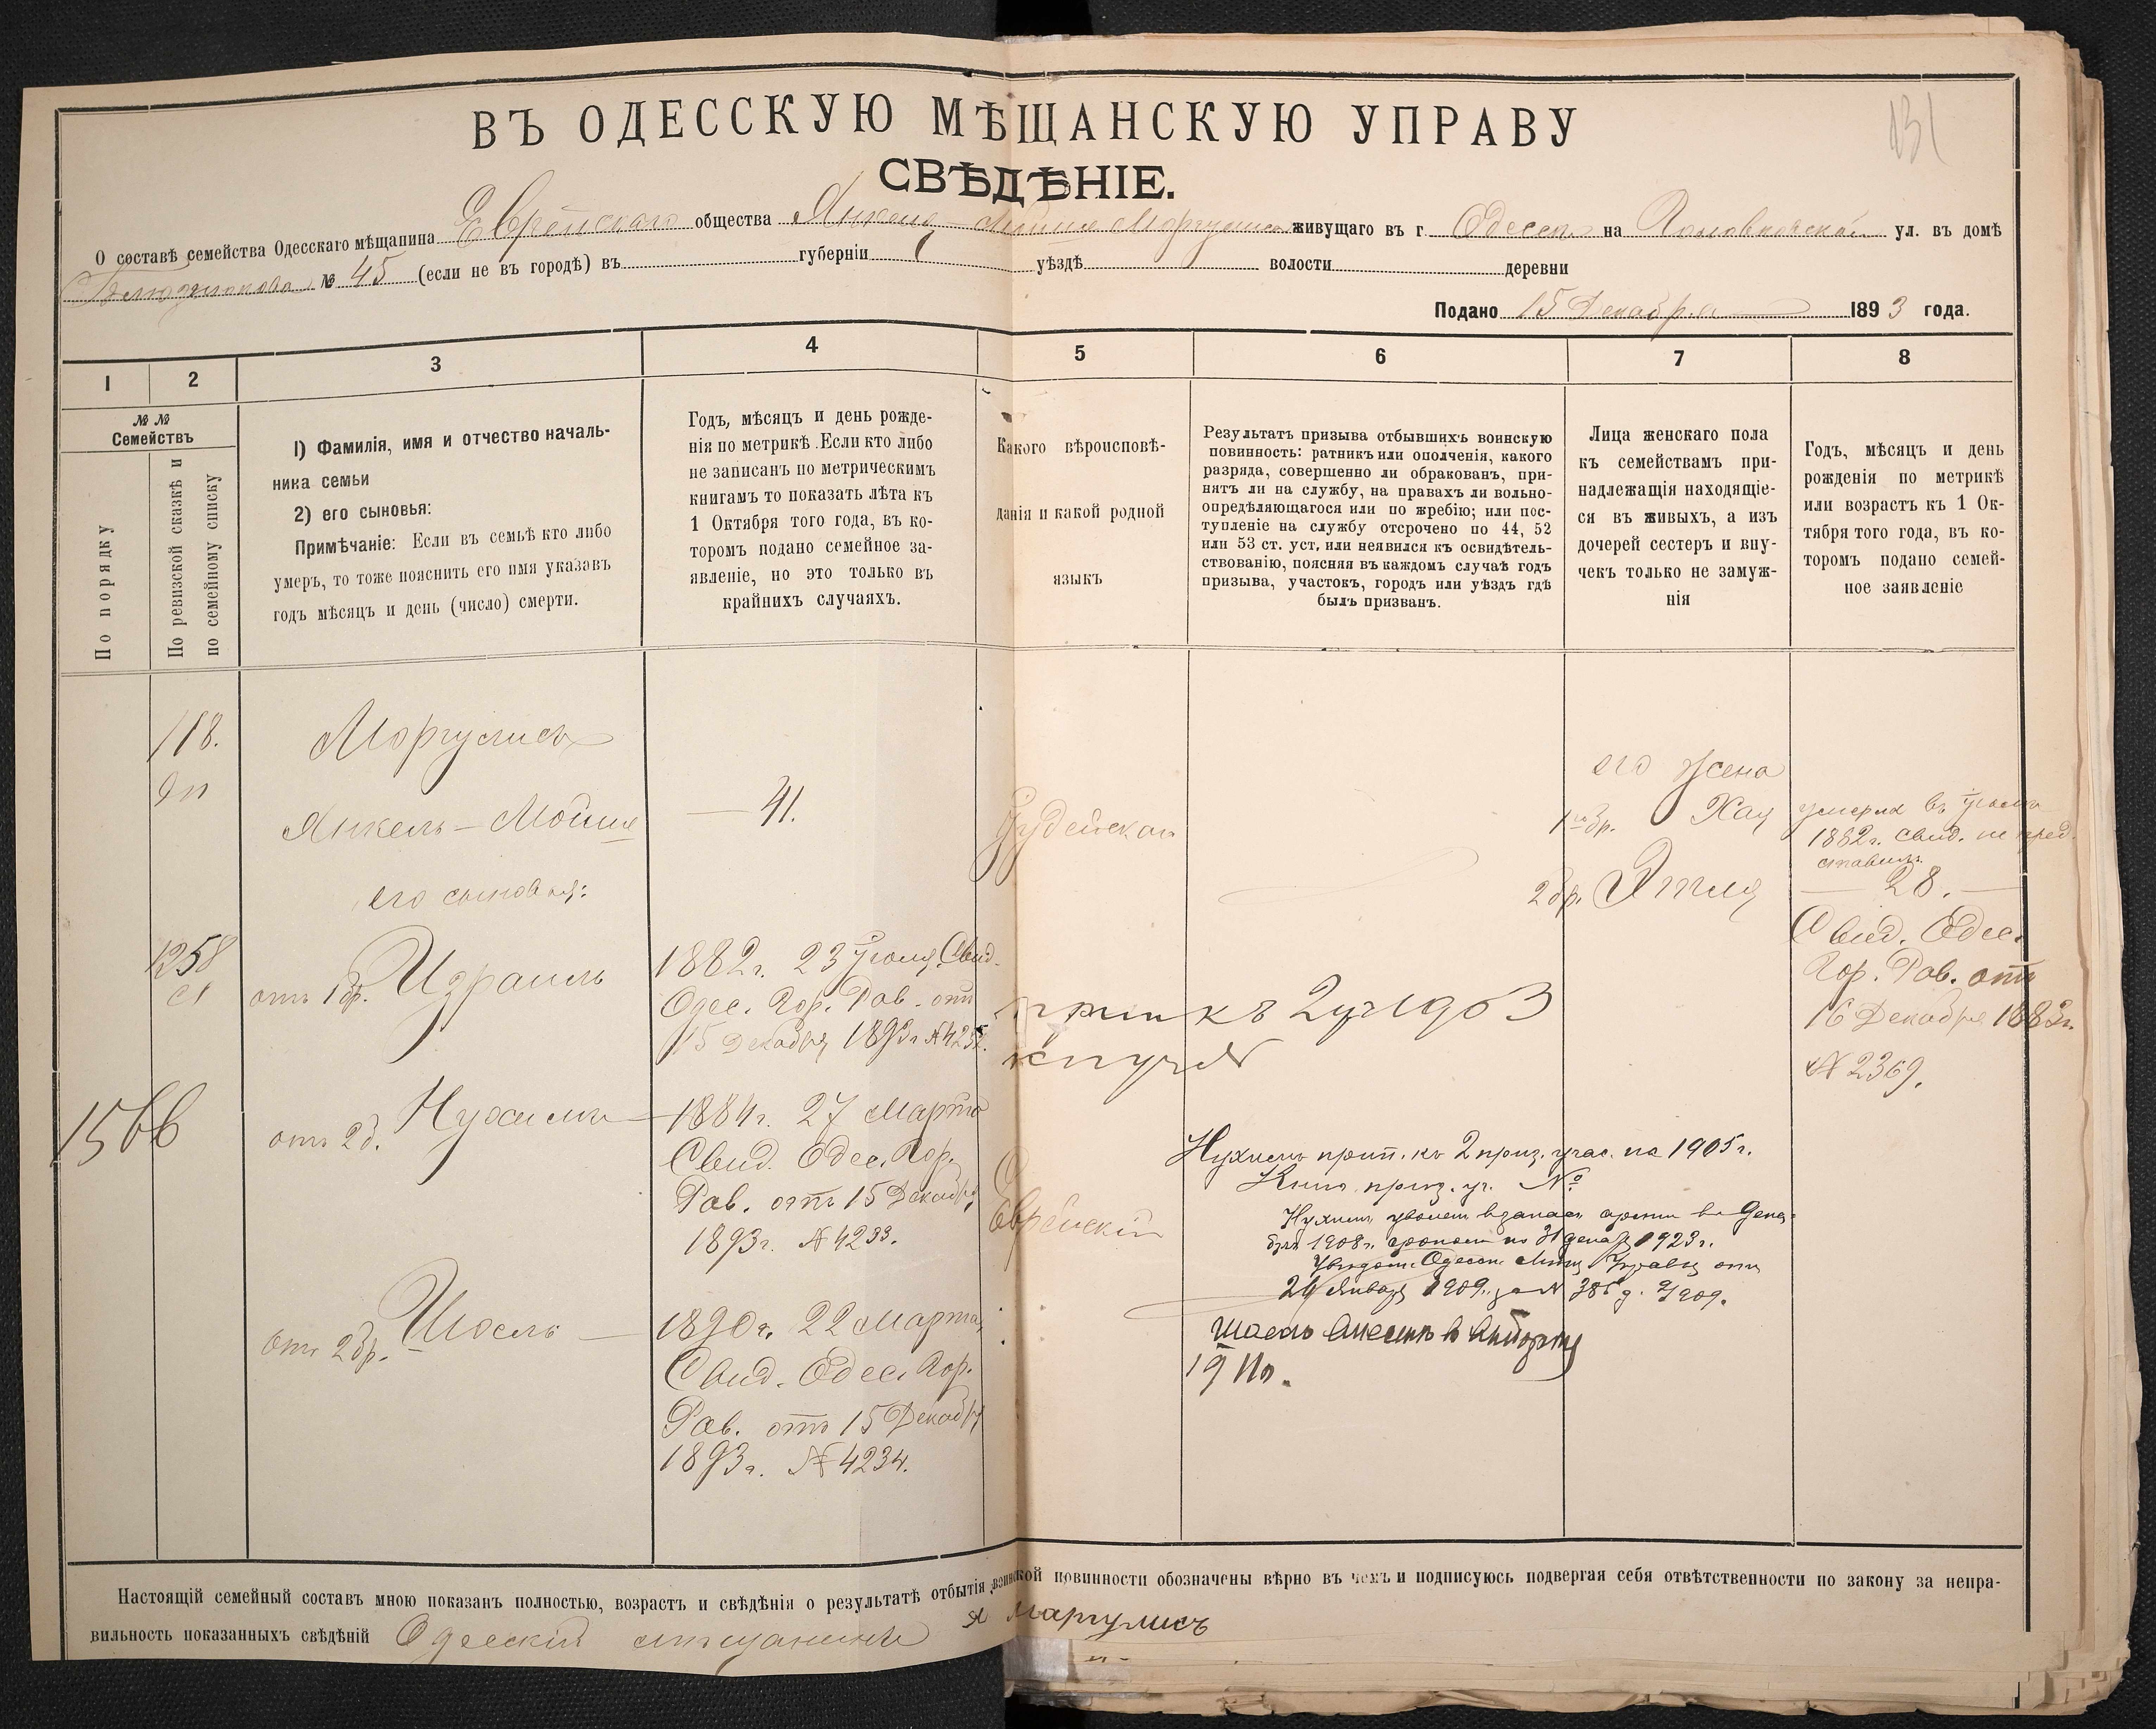 131
ВЪ ОДЕССКУЮ МѢЩАНСКУЮ УПРАВУ
СВѢДѢНІЕ.
О составѣ семейства Одесскаго мѣщанина Еврейскаго общества Янкеля-Мойша Моргулиса живущаго въ г. Одессѣ на ул. въ домѣ
№ 45 (если не въ городѣ) въ губерніи уѣздѣ волости деревни
Подано 15 Декабря 1893 года.
1 2 3 4 5 6 7 8
№ №
Семействъ
По порядку
По ревизской сказкѣ и
по семейному списку
1) Фамилія, имя и отчество началь-
ника семьи
2) его сыновья:
Примѣчаніе: Если въ семьѣ кто либо
умеръ, то тоже пояснить его имя указавъ
годъ мѣсяцъ и день (число) смерти.
Годъ, мѣсяцъ и день рожде-
нія по метрикѣ. Если кто либо
не записанъ по метрическимъ
книгамъ то показать лѣта къ
1 Октября того года, въ ко-
торомъ подано семейное за-
явленіе, но это только въ
крайнихъ случаяхъ.
Какого вѣроисповѣ-
данія и какой родной
языкъ
Результатъ призыва отбывшихъ воинскую
повинность: ратникъ или ополченія, какого
разряда, совершенно ли обракованъ, при-
нятъ ли на службу, на правахъ ли вольно-
опредѣляющагося или по жребію; или пос-
тупленіе на службу отсрочено по 44, 52
или 53 ст. уст. или неявился къ освидѣтель-
ствованію, поясняя въ каждомъ случаѣ годъ
призыва, участокъ, городъ или уѣздъ гдѣ
былъ призванъ.
Лица женскаго пола
къ семействамъ при-
надлежащія находящіе-
ся въ живыхъ, а изъ
дочерей сестеръ и вну-
чекъ только не замуж-
нія
Годъ, мѣсяцъ и день
рожденія по метрикѣ
или возрастъ къ 1 Ок-
тября того года, въ ко-
торомъ подано семей-
ное заявленіе
118.
Моргулисъ
Янкель-Мойше
— 41.
Іудейская
его жена
1й бр. Хая
умерла въ
1882г. свид. не пред-
ставилъ
2 бр. Этля
— 28. —
Свид. Одес.
Гор. Рав. отъ
16 Декабря 1883г.
№ 2369.
его сыновья:
1258
отъ 1 бр. Израиль
1882г. 23 Іюля Свид.
Одес. Гор. Рав. отъ
15 Декабря 1893г №
прип къ 2 уч 1903
1566
отъ 2 б. Нухимъ
1884г. 27 Марта
Свид. Одес. Гор.
Рав. отъ 15 Декабря
1893г. № 4233.
Еврейскій
Нухимъ прип. къ 2 приз. учас. на 1905г.
Книга приз. уч. №
Нухимъ уволенъ въ запасъ арміи въ Декаб-
брѣ 1908г. срокомъ по 31 декаб. 1923г.
Увѣдом. Одесск. Мѣщ. Управы отъ
24 Января 1909г. за №
отъ 2 бр. Шоель —
1890г. 22 Марта
Свид. Одес. Гор.
Рав. отъ 15 Декабря
1893г. № 4234.
Шоель внесенъ въ
1911г.
Настоящій семейный составъ мною показанъ полностью, возрастъ и свѣдѣнія о результатѣ отбытія воинской повинности обозначены вѣрно въ чемъ и подписуюсь подвергая себя отвѣтственности по закону за непра-
вильность показанныхъ свѣдѣній Одесскій мѣщанинъ Я Маргулисъ